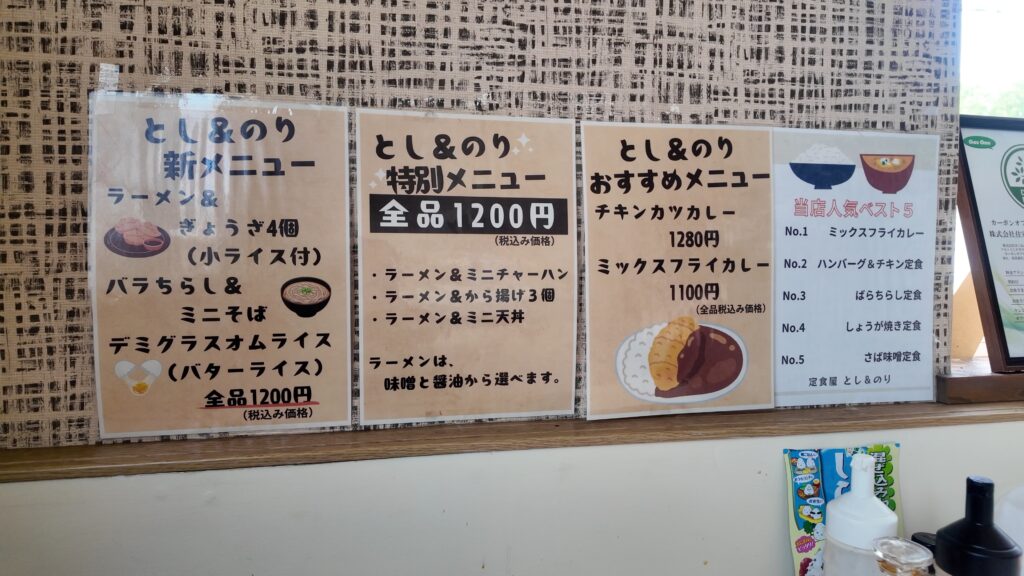 とし&のり
新メニュー
ラーメン&
ぎょうざ4個
(小ライス付)
バラちらし&
ミニそば
デミグラスオムライス
(バターライス)
全品1200円
(税込み価格)
とし&のり
特別メニュー
全品1200円
(税込み価格)
・ラーメン&ミニチャーハン
・ラーメン&から揚げ3個
・ラーメン&ミニ天丼
ラーメンは、
味噌と醤油から選べます。
とし&のり
おすすめメニュー
チキンカツカレー
1280円
ミックスフライカレー
1100円
(全品税込み価格)
当店人気ベスト5
No.1 ミックスフライカレー
No.2 ハンバーグ&チキン定食
No.3 ばらちらし定食
No.4 しょうが焼き定食
No.5 さば味噌定食
定食屋 とし&のり